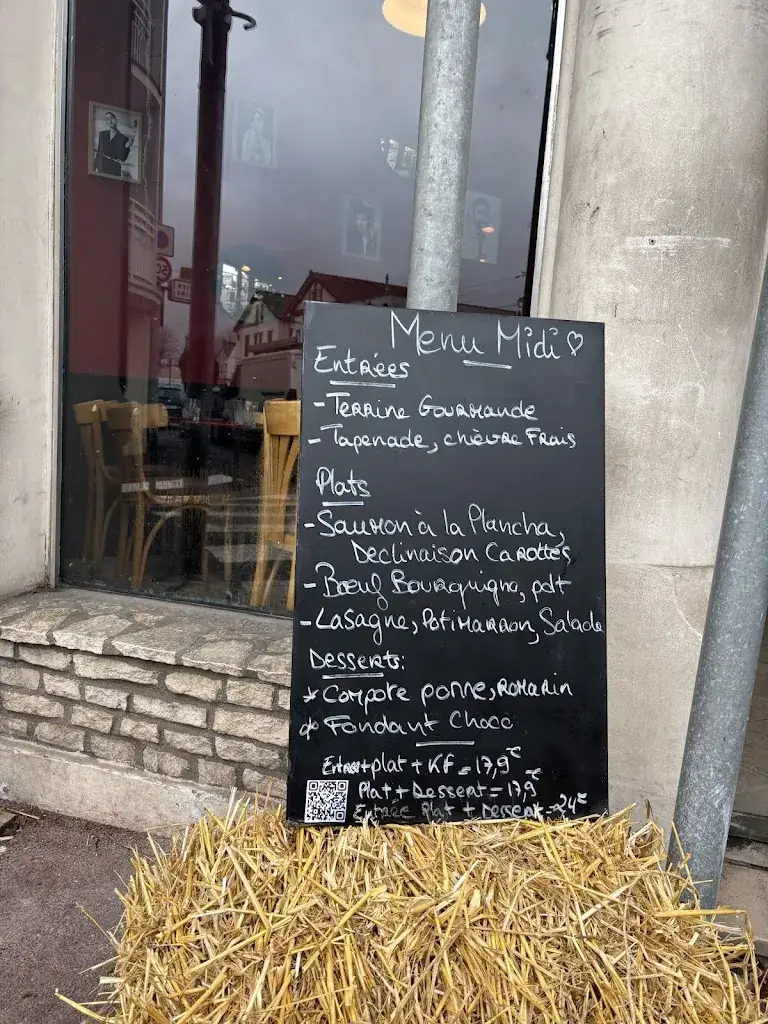 Menu Midi ♡
Entrées
- Terrine Gourmande
- Tapenade, chèvre Frais
Plats
- Saumon à la Plancha,
Declinaison Carottes
- Bœuf Bourguigno, pdt
- Lasagne, Potimarron, Salade
Desserts:
* Compote pomme, Romarin
* Fondant Choco
Entrée+plat + KF = 17,9€
Plat + Dessert = 17,9€
Entrée Plat + Dessert = 24€